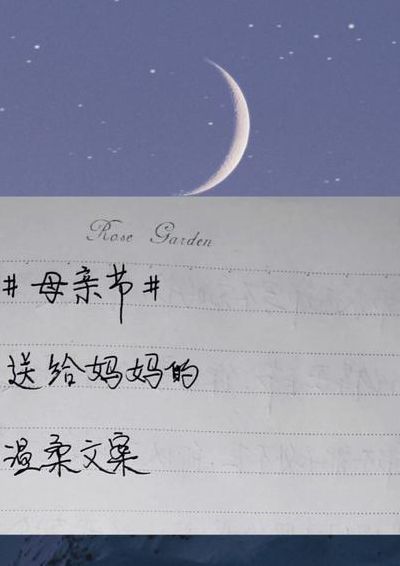 Rose Garden
#母亲节#
送给妈妈的
温柔文案